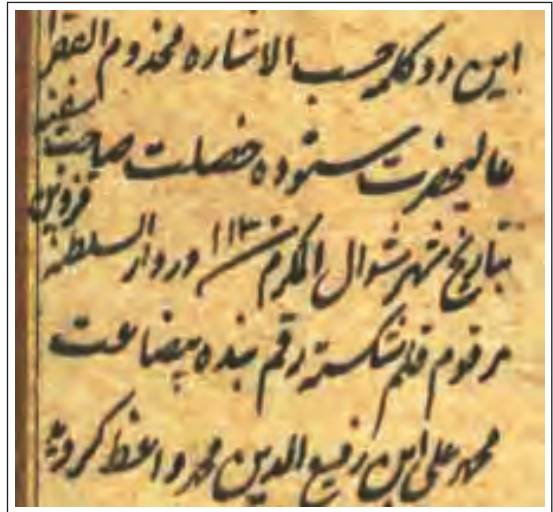 این دو کلمه حسب الاشاره مخدوم الفقرا
عالیحضرت ستوده خصلت صاحب سفینه
بتاریخ شهر شوال المکرم سنه ۱۱۳ در دار السلطنه قزوین
مرقوم قلم شکسته رقم بنده بیضاعت
محمد علی ابن رفیع الدین محمد واعظ گردید